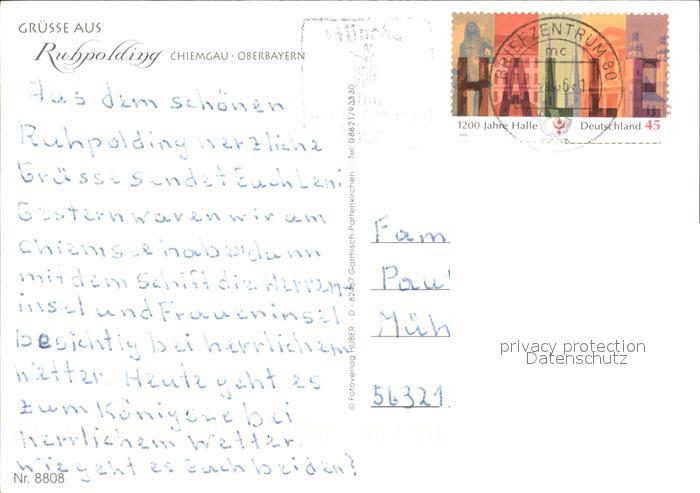 GRÜSSE AUS
Ruhpolding CHIEMGAU - OBERBAYERN
Aus dem schönen
Ruhpolding herzliche
Grüsse sendet Euch Leni
Gestern waren wir am
Chiemsee haben dann
mit dem Schiff die Herren-
insel und Fraueninsel
besichtig bei herrlichem
Wetter. Heute geht es
zum Königsee bei
herrlichem Wetter.
Wie geht es Euch beiden?
Nr. 8808
© Fotoverlag HUBER · D - 82467 Garmisch-Partenkirchen · Tel. 08821/93330
BRIEFZENTRUM 80
mc
HALLE
1200 Jahre Halle Deutschland 45
Fam
Pau
Müh
56321
privacy protection
Datenschutz